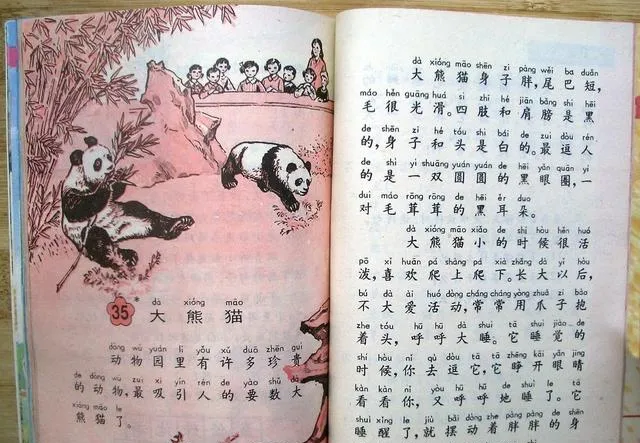 dà xióng māo
35* 大熊猫
dòng wù yuán lǐ yǒu xǔ duō zhēn guì
动物园里有许多珍贵
de dòng wù zuì xī yǐn rén de yào shǔ dà
的动物,最吸引人的要数大
xióng māo le
熊猫了。
dà xióng māo shēn zi pàng wěi ba duǎn
大熊猫身子胖,尾巴短,
máo hěn guāng huá sì zhī hé jiān bǎng shì hēi
毛很光滑。四肢和肩膀是黑
de shēn zi hé tóu shì bái de zuì dòu rén
的,身子和头是白的。最逗人
de shì yì shuāng yuán yuán de hēi yǎn quān yí
的是一双圆圆的黑眼圈,一
duì máo róng róng de hēi ěr duo
对毛茸茸的黑耳朵。
dà xióng māo xiǎo de shí hòu hěn huó
大熊猫小的时候很活
pō xǐ huān pá shàng pá xià zhǎng dà yǐ hòu
泼,喜欢爬上爬下。长大以后,
bú dà ài huó dòng cháng cháng yòng zhuǎ zi bào
不大爱活动,常常用爪子抱
zhe tóu hū hū dà shuì tā shuì jiào de
着头,呼呼大睡。它睡觉的
shí hòu nǐ qù dòu tā tā zhēng kāi yǎn jing
时候,你去逗它,它睁开眼睛
kàn kàn nǐ yòu hū hū de shuì le tā
看看你,又呼呼地睡了。它
shuì xǐng le jiù bǎi dòng zhe pàng pàng de shēn
睡醒了,就摆动着胖胖的身